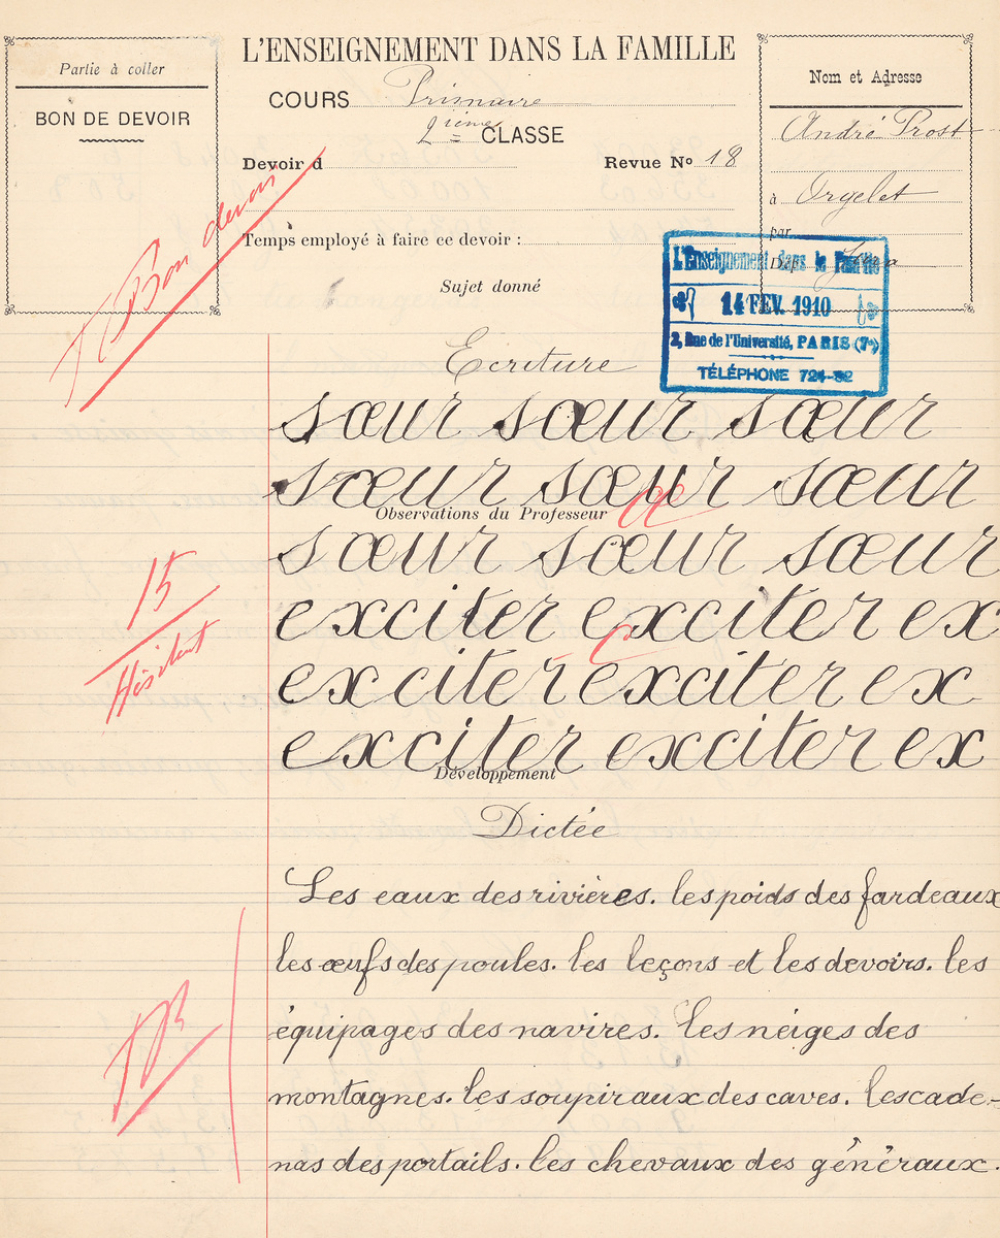 Partie à coller
BON DE DEVOIR
L'ENSEIGNEMENT DANS LA FAMILLE
COURS Primaire
2ième CLASSE
Devoir d
Revue No 18
Temps employé à faire ce devoir :
Sujet donné
Nom et Adresse
André Prost
à Orgelet
par
Dép Jura
T Bon devoir
L'Enseignement dans la Famille
14 FEV. 1910
2, Rue de l'Université, PARIS (7e)
TÉLÉPHONE 724-82
Ecriture
sœur sœur sœur
sœur sœur sœur
Observations du Professeur
œ
sœur sœur sœur
15
Hésitant
exciter exciter ex
c
exciter exciter ex
exciter exciter ex
Développement
Dictée
Les eaux des rivières. les poids des fardeaux
les œufs des poules. les leçons et les devoirs. les
équipages des navires. Les neiges des
TB
montagnes. les soupiraux des caves. les cade-
nas des portails. les chevaux des généraux.